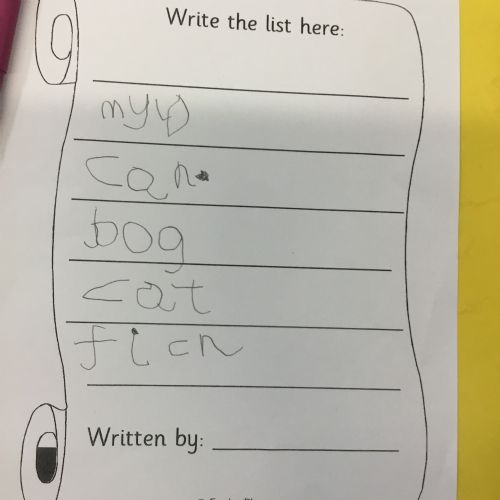 Write the list here:
can
bog
cat
ficn
Written by: